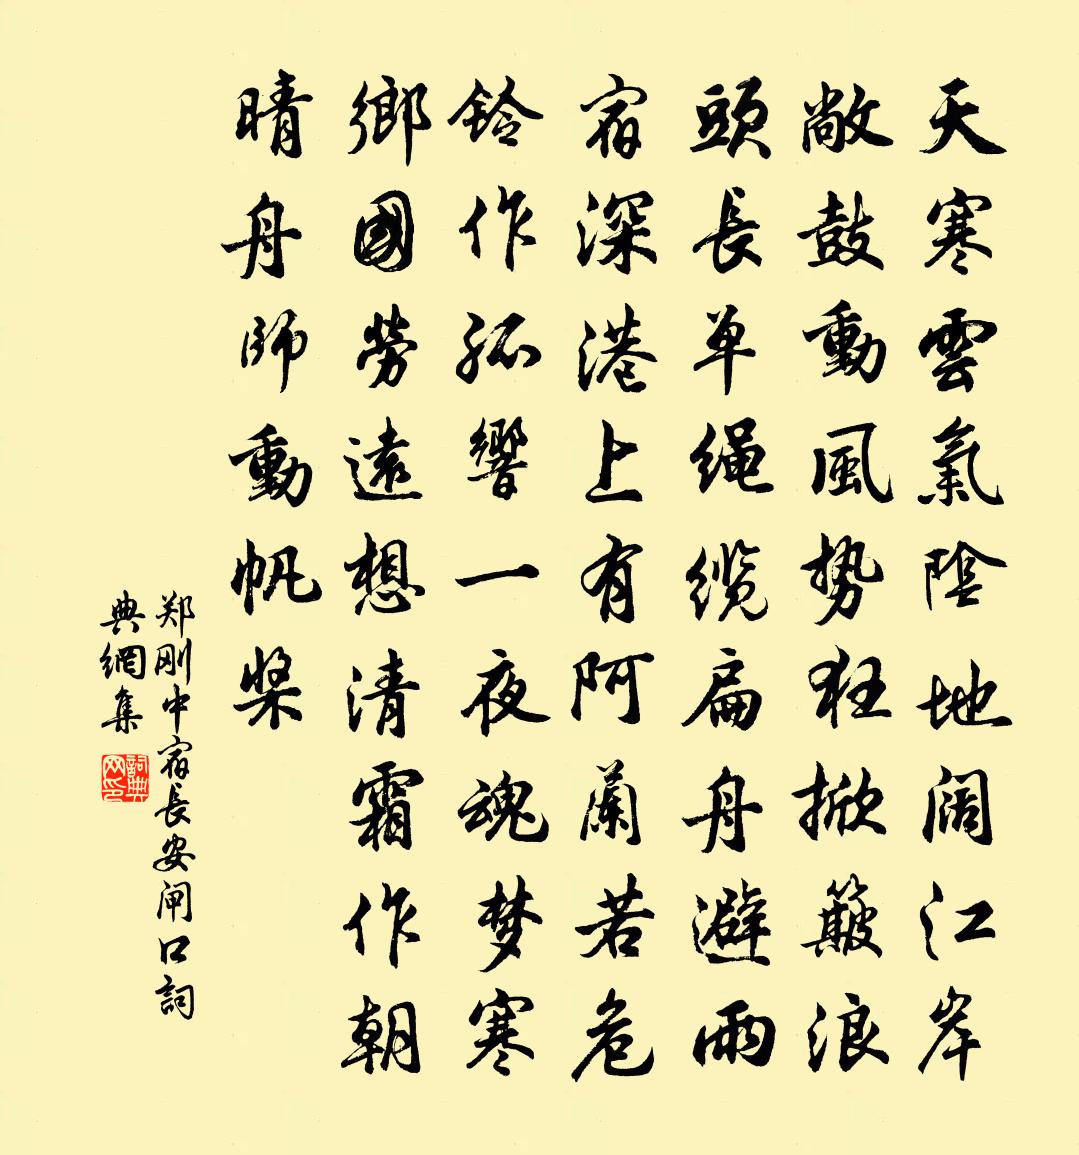 天寒雲氣陰地阔江岸
敞鼓動風势狂掀簸浪
頭長单绳缆扁舟避雨
宿深港上有阿蘭若危
鈴作孤響一夜魂梦寒
鄉國勞遠想清霜作朝
晴舟师動帆桨
郑刚中宿長安闸口詞
典網集
詞典
网印